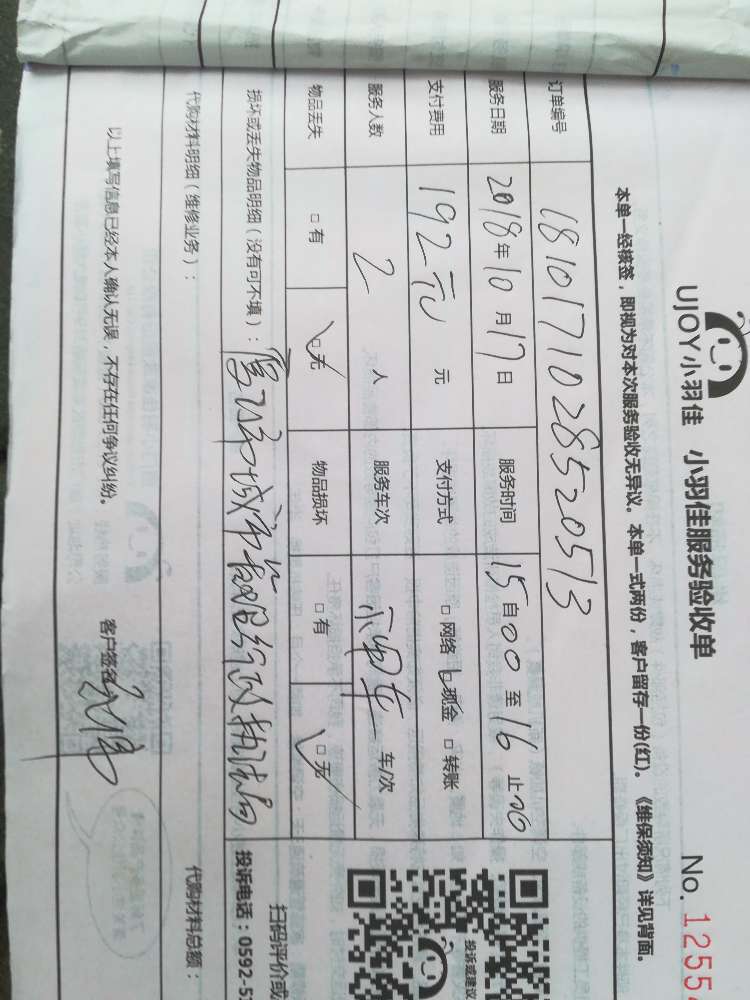 UJOY小羽佳 小羽佳服务验收单
No. 12554
本单一经核签，即视为对本次服务验收无异议。本单一式两份，客户留存一份(红)。《维保须知》详见背面。
订单编号 1810171028520513
服务日期 2018年10月17日 服务时间 15自00至16止00
支付费用 192元 元 支付方式 □网络 □现金 □转账
服务人数 2 人 服务车次 车/次
物品丢失 □有 □无 物品损坏 □有 □无
损坏或丢失物品明细（没有可不填）： 厦门市城市管理行政执法局
代购材料明细（维修业务）： 代购材料总额：
以上填写信息已经本人确认无误，不存在任何争议纠纷。 客户签名
投诉或建议
扫码评价或
投诉电话：0592-5